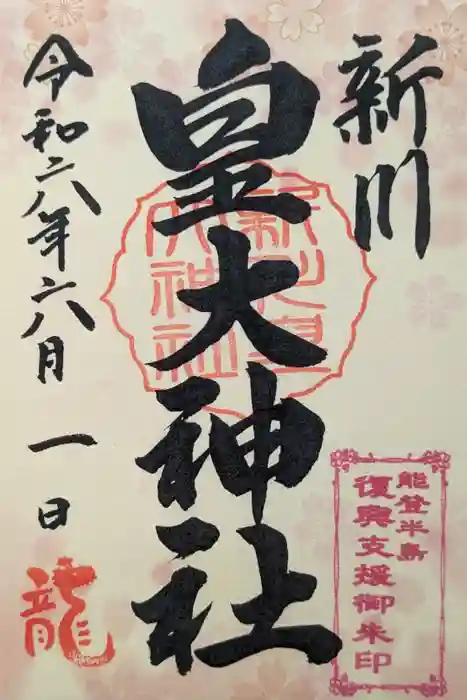 新川
皇大神社
新川皇
大神社
令和六年六月一日
龍
能登半島
復興支援御朱印